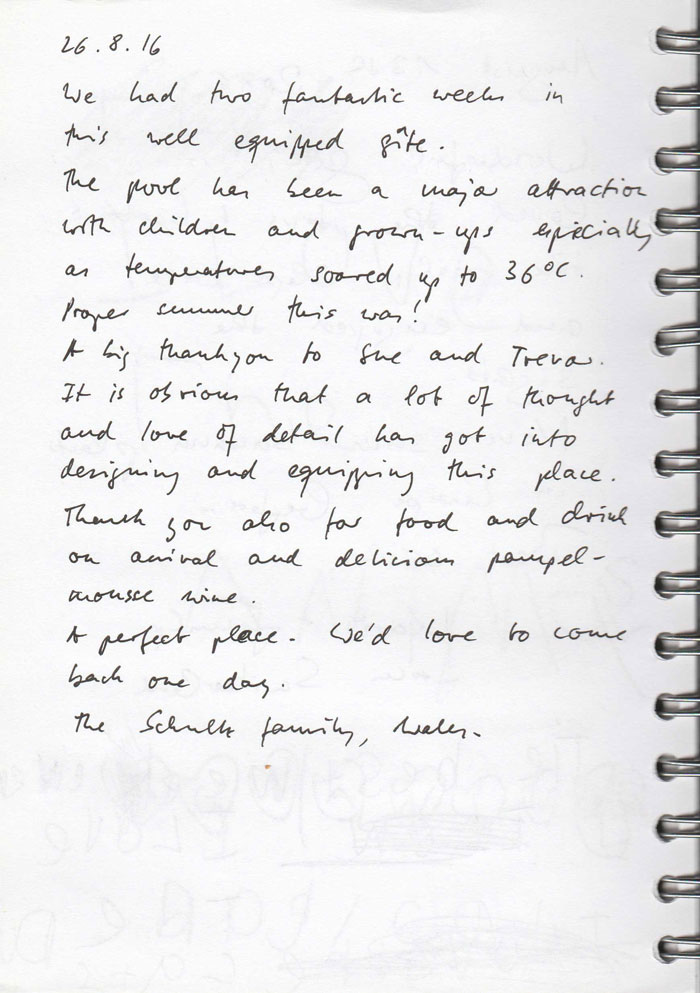 26.8.16
We had two fantastic weeks in
this well equipped gîte.
The pool has been a major attraction
with children and grown-ups especially
as temperatures soared up to 36°C.
Proper summer this was!
A big thankyou to Sue and Trevor.
It is obvious that a lot of thought
and love of detail has got into
designing and equipping this place.
Thank you also for food and drink
on arrival and delicious pampel-
mousse wine.
A perfect place. We'd love to come
back one day.
The Schultz family, Wales.